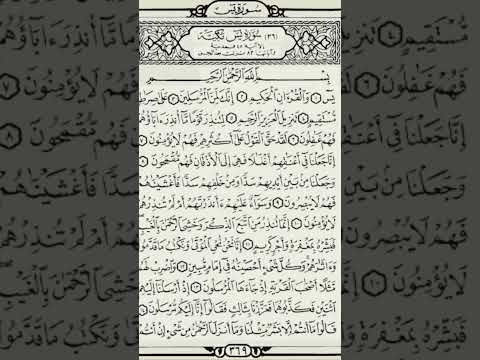 سُورَةُ يسٓ
(٣٦) سُورَةُ يسٓ مَكِّيَّة
إلا آية ٤٥ فمدنية
وآياتها ٨٣ نزلت بعد الجن
بِسْمِ ٱللَّهِ ٱلرَّحْمَٰنِ ٱلرَّحِيمِ
يسٓ ١ وَٱلْقُرْءَانِ ٱلْحَكِيمِ ٢ إِنَّكَ لَمِنَ ٱلْمُرْسَلِينَ ٣ عَلَىٰ صِرَٰطٍ
مُّسْتَقِيمٍ ٤ تَنزِيلَ ٱلْعَزِيزِ ٱلرَّحِيمِ ٥ لِتُنذِرَ قَوْمًا مَّآ أُنذِرَ ءَابَآؤُهُمْ
فَهُمْ غَٰفِلُونَ ٦ لَقَدْ حَقَّ ٱلْقَوْلُ عَلَىٰٓ أَكْثَرِهِمْ فَهُمْ لَا يُؤْمِنُونَ ٧
إِنَّا جَعَلْنَا فِىٓ أَعْنَٰقِهِمْ أَغْلَٰلًا فَهِىَ إِلَى ٱلْأَذْقَانِ فَهُم مُّقْمَحُونَ ٨
وَجَعَلْنَا مِنۢ بَيْنِ أَيْدِيهِمْ سَدًّا وَمِنْ خَلْفِهِمْ سَدًّا فَأَغْشَيْنَٰهُمْ
فَهُمْ لَا يُبْصِرُونَ ٩ وَسَوَآءٌ عَلَيْهِمْ ءَأَنذَرْتَهُمْ أَمْ لَمْ تُنذِرْهُمْ
لَا يُؤْمِنُونَ ١٠ إِنَّمَا تُنذِرُ مَنِ ٱتَّبَعَ ٱلذِّكْرَ وَخَشِىَ ٱلرَّحْمَٰنَ بِٱلْغَيْبِ
فَبَشِّرْهُ بِمَغْفِرَةٍ وَأَجْرٍ كَرِيمٍ ١١ إِنَّا نَحْنُ نُحْىِ ٱلْمَوْتَىٰ وَنَكْتُبُ مَا قَدَّمُوا۟
وَءَاثَٰرَهُمْ وَكُلَّ شَىْءٍ أَحْصَيْنَٰهُ فِىٓ إِمَامٍ مُّبِينٍ ١٢ وَٱضْرِبْ لَهُم
مَّثَلًا أَصْحَٰبَ ٱلْقَرْيَةِ إِذْ جَآءَهَا ٱلْمُرْسَلُونَ ١٣ إِذْ أَرْسَلْنَآ إِلَيْهِمُ
ٱثْنَيْنِ فَكَذَّبُوهُمَا فَعَزَّزْنَا بِثَالِثٍ فَقَالُوٓا۟ إِنَّآ إِلَيْكُم مُّرْسَلُونَ ١٤
قَالُوا۟ مَآ أَنتُمْ إِلَّا بَشَرٌ مِّثْلُنَا وَمَآ أَنزَلَ ٱلرَّحْمَٰنُ مِن شَىْءٍ إِنْ أَنتُمْ
٣٦٩